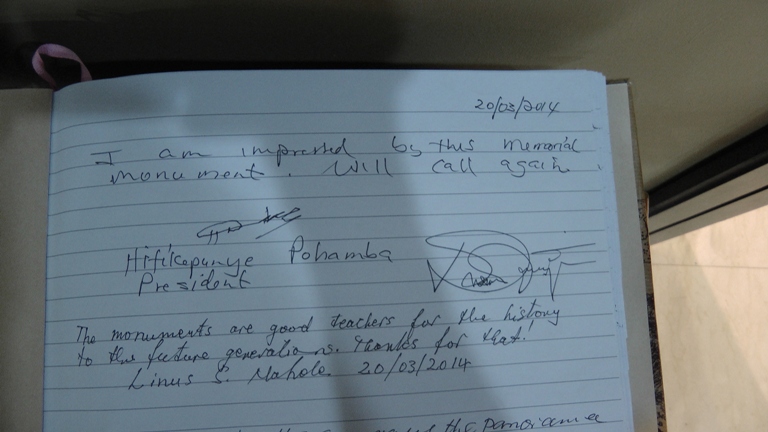 20/03/2014
I am impressed by this memorial
monument. Will call again.
Hifikepunye Pohamba
President
The monuments are good teachers for the history
to the future generations. Thanks for that!
Linus S. Nahole. 20/03/2014
the panorama